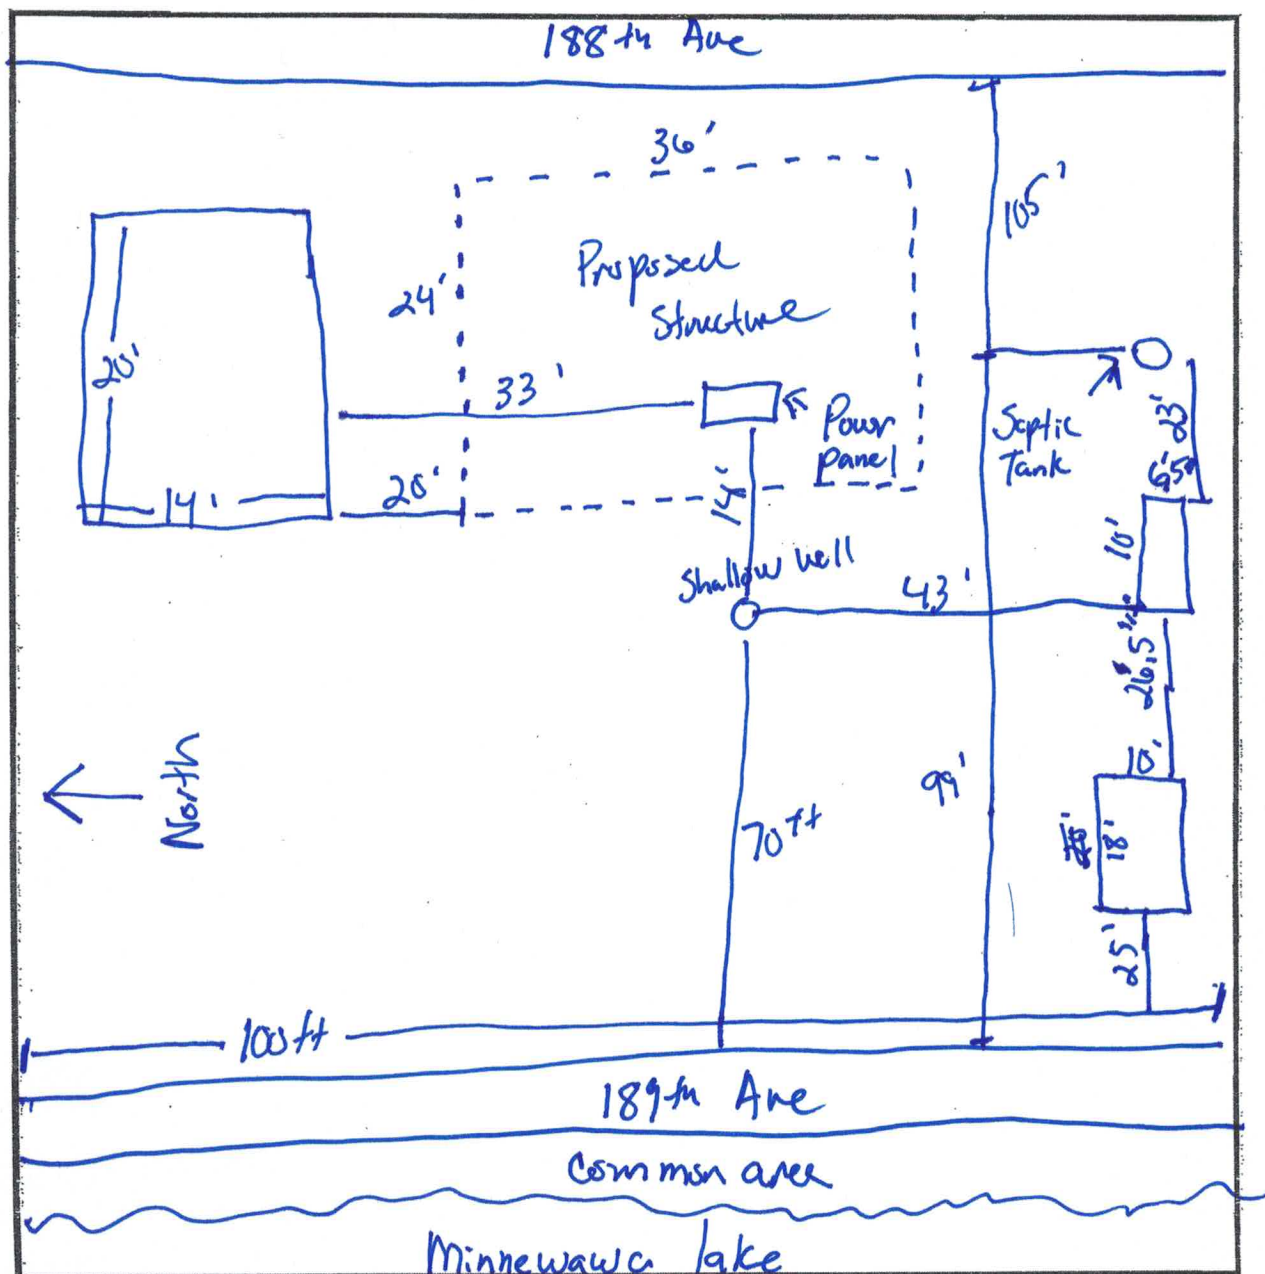 188th Ave
36'
105'
Proposed
Structure
24'
20'
33'
Power
panel
Septic
Tank
23'
6.5'
14'
20'
14'
10'
Shallow well
43'
26.5'
North
10'
99'
70ft
18'
25'
100ft
189th Ave
Common area
Minnewawa lake